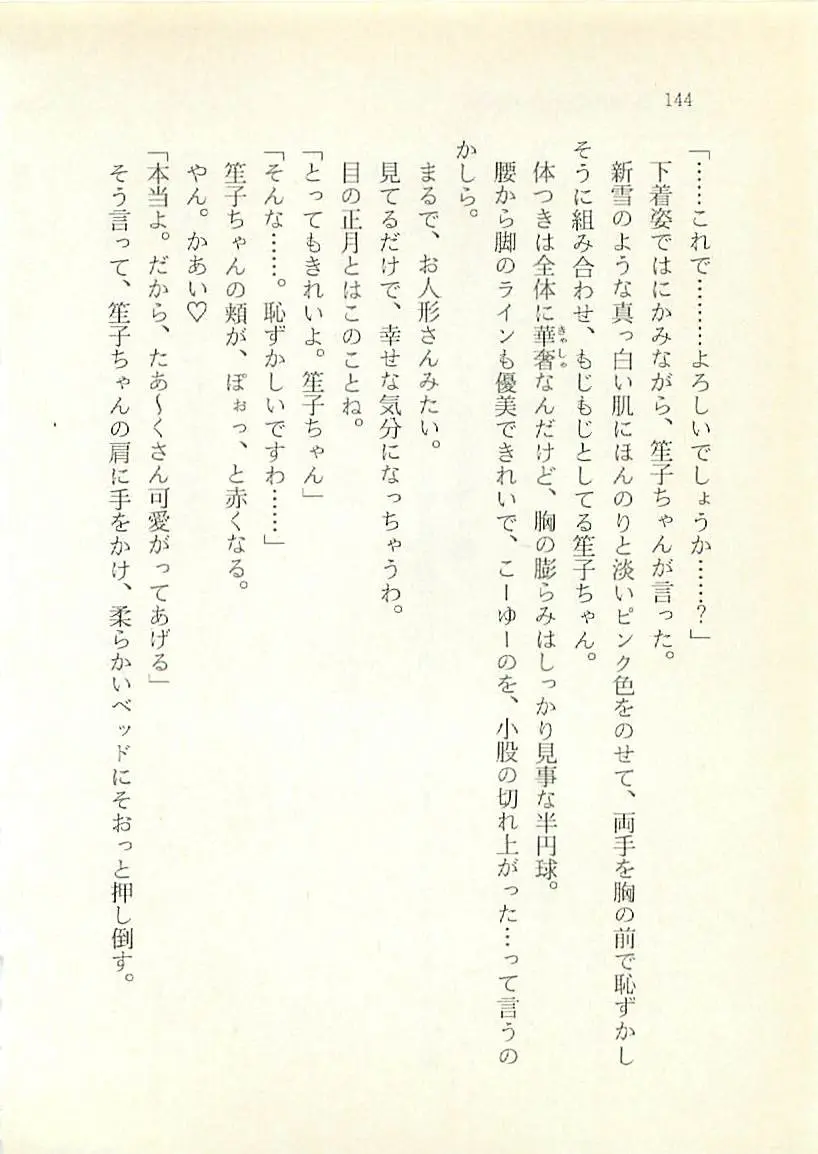 144
「……これで………よろしいでしょうか……？」
下着姿ではにかみながら、笙子ちゃんが言った。
新雪のような真っ白い肌にほんのりと淡いピンク色をのせて、両手を胸の前で恥ずかし
そうに組み合わせ、もじもじとしてる笙子ちゃん。
体つきは全体に華奢なんだけど、胸の膨らみはしっかり見事な半円球。
きゃしゃ
腰から脚のラインも優美できれいで、こーゆーのを、小股の切れ上がった…って言うの
かしら。
まるで、お人形さんみたい。
見てるだけで、幸せな気分になっちゃうわ。
目の正月とはこのことね。
「とってもきれいよ。笙子ちゃん」
「そんな……。恥ずかしいですわ……」
笙子ちゃんの頬が、ぽぉっ、と赤くなる。
やん。かあい♡
「本当よ。だから、たあ〜くさん可愛がってあげる」
そう言って、笙子ちゃんの肩に手をかけ、柔らかいベッドにそおっと押し倒す。